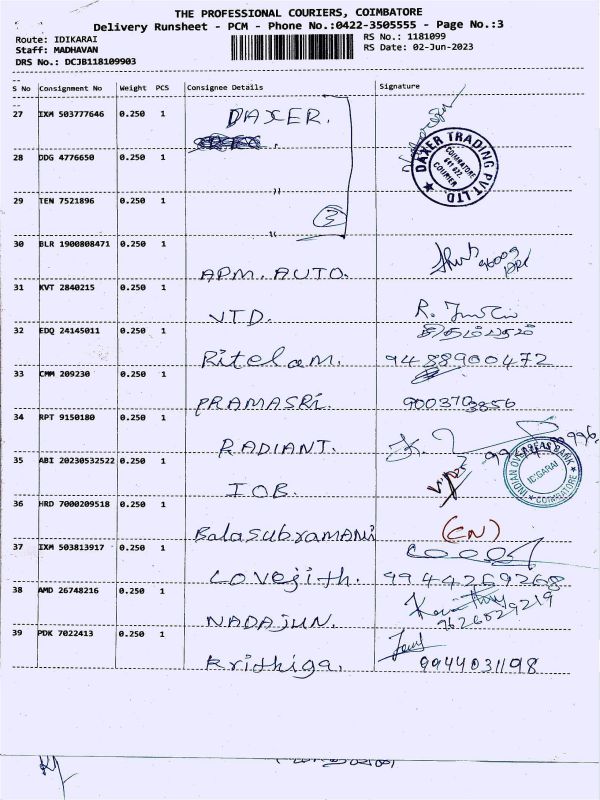 THE PROFESSIONAL COURIERS, COIMBATORE
Delivery Runsheet - PCM - Phone No.:0422-3505555 - Page No.:3
Route: IDIKARAI
RS No.: 1181099
Staff: MADHAVAN
RS Date: 02-Jun-2023
DRS No.: DCJB118109903
S No Consignment No Weight PCS Consignee Details Signature
27 IXM 503777646 0.250 1 DAXER.
28 DDG 4776650 0.250 1
DAXER TRADING PVT.LTD.
COIMBATORE
641 022.
COURIER
29 TEN 7521896 0.250 1 "
3
"
30 BLR 1900808471 0.250 1 APM. AUTO.
31 KVT 2840215 0.250 1 VTD.
32 EDQ 24145011 0.250 1 Ritelam. 9488900472
சிதம்பரம்
33 CMM 209230 0.250 1 PRAMASRI. 9003703856
34 RPT 9150180 0.250 1 RADIANT.
35 ABI 20230532522 0.250 1 IOB.
INDIAN OVERSEAS BANK
IDIGARAI
COIMBATORE
36 HRD 7000209518 0.250 1 Balasubramani (CN)
37 IXM 503813917 0.250 1 Lovejith. 9944269268
38 AMD 26748216 0.250 1 NADAJUN. 9626829219
39 PDK 7022413 0.250 1 Krithiga. 9944031198